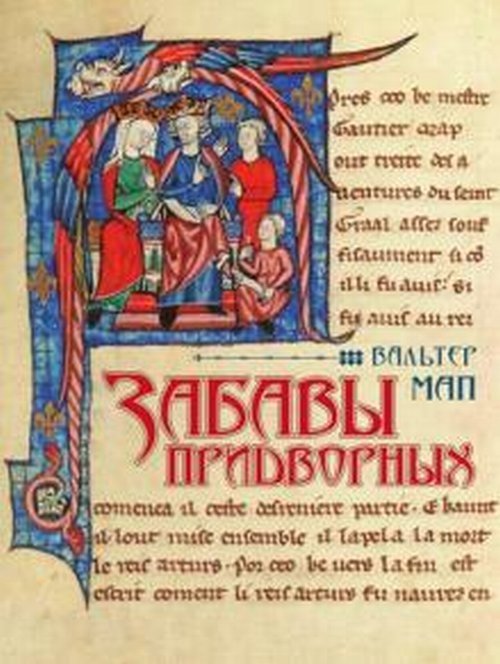 pres ceo be mestre
Gautier map
out treite des a
uentures du seint
Graal assez souf
fisaument si co
il li fu auis: Si
fu auis au rei
ВАЛЬТЕР
МАП
ЗАБАВЫ
ПРИДВОРНЫХ
comenca il ceste desreniere partie. E kaunt
il lout mise ensemble il lapela la mort
le reis arturs. Por ceo ke uers la fin est
escrit coment li reis arturs fu naures en